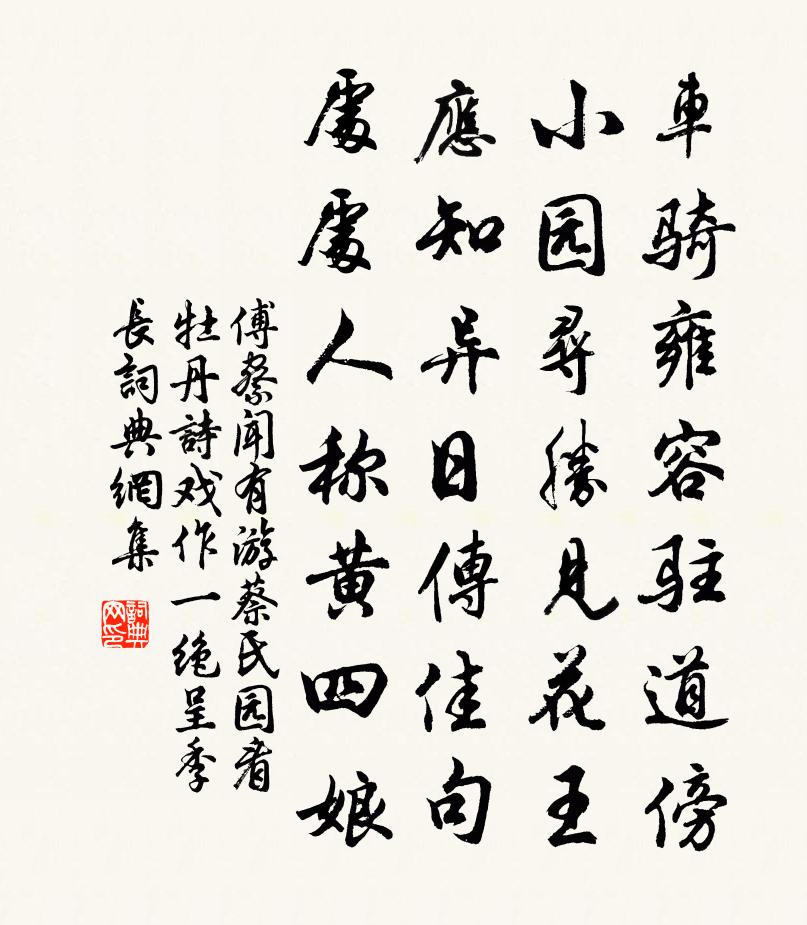 車骑雍容駐道傍
小园尋勝見花王
應知异日傳佳句
處處人称黄四娘
傅察聞有游蔡民园者
牡丹詩戏作一绝呈季
長詞典網集
詞典网印